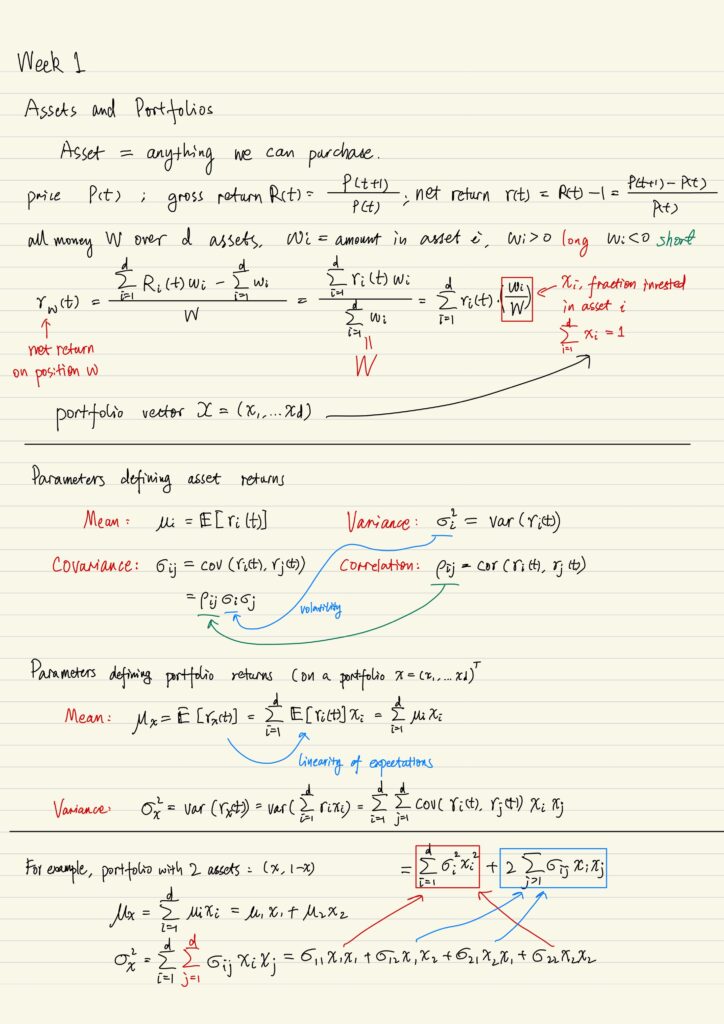 Week 1
Assets and Portfolios
Asset = anything we can purchase.
price P(t) ; gross return R(t) = P(t+1) / P(t) ; net return r(t) = R(t) - 1 = (P(t+1) - P(t)) / P(t)
all money W over d assets, wi = amount in asset i, wi>0 long wi<0 short
r_w(t) = (∑_{i=1}^d Ri(t)wi - ∑_{i=1}^d wi) / W = (∑_{i=1}^d ri(t)wi) / (∑_{i=1}^d wi) = ∑_{i=1}^d ri(t)·(wi/W) ← xi, fraction invested
in asset i
∑_{i=1}^d xi = 1
↑ net return
on position w
|| W
portfolio vector x = (x1,...xd)
Parameters defining asset returns
Mean: μi = E[ri(t)] Variance: σi² = var(ri(t))
Covariance: σij = cov(ri(t), rj(t)) Correlation: ρij = cor(ri(t), rj(t))
= ρij σiσj
volatility
Parameters defining portfolio returns (on a portfolio x=(x1,...xd)^T
Mean: μx = E[rx(t)] = ∑_{i=1}^d E[ri(t)]xi = ∑_{i=1}^d μixi
linearity of expectations
Variance: σx² = var(rx(t)) = var(∑_{i=1}^d rixi) = ∑_{i=1}^d ∑_{j=1}^d cov(ri(t), rj(t)) xi xj
For example, portfolio with 2 assets: (x, 1-x) = ∑_{i=1}^d σi²xi² + 2∑_{j>i} σij xixj
μx = ∑_{i=1}^d μixi = μ1x1 + μ2x2
σx² = ∑_{i=1}^d ∑_{j=1}^d σij xixj = σ11x1x1 + σ12x1x2 + σ21x2x1 + σ22x2x2